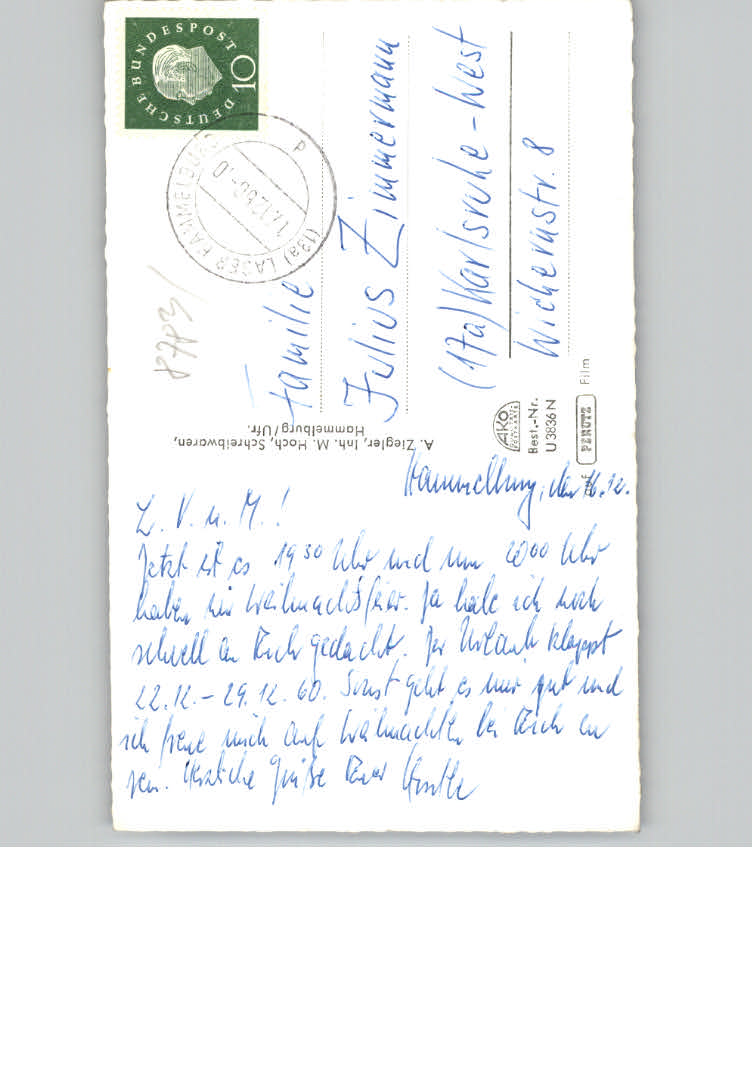 DEUTSCHE BUNDESPOST
10
(13a) LAGER HAMMELBURG
17.12.60
P
8783/
Familie
Julius Zimmermann
(17a) Karlsruhe-West
Wichernstr. 8
A. Ziegler, Inh. M. Hoch, Schreibwaren,
Hammelburg/Ufr.
AKO
POSTKARTE
Best.-Nr.
U 3836 N
PERUTZ Film
Hammelburg, den 16.12.
L. V. u. M.!
Jetzt ist es 19 30 Uhr und um 2000 Uhr
haben wir Weihnachtsfeier. Da habe ich noch
schnell an Euch gedacht. Der Urlaub klappt
22.12. – 29.12. 60. Sonst geht es mir gut und
ich freue mich auf Weihnachten bei Euch zu
sein. Herzliche Grüße Euer